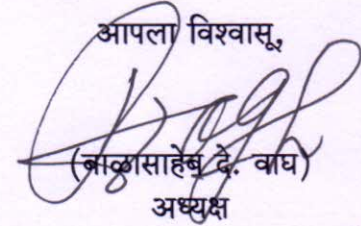 आपला विश्वासू,
(बाळासाहेब दे. वाघ)
अध्यक्ष